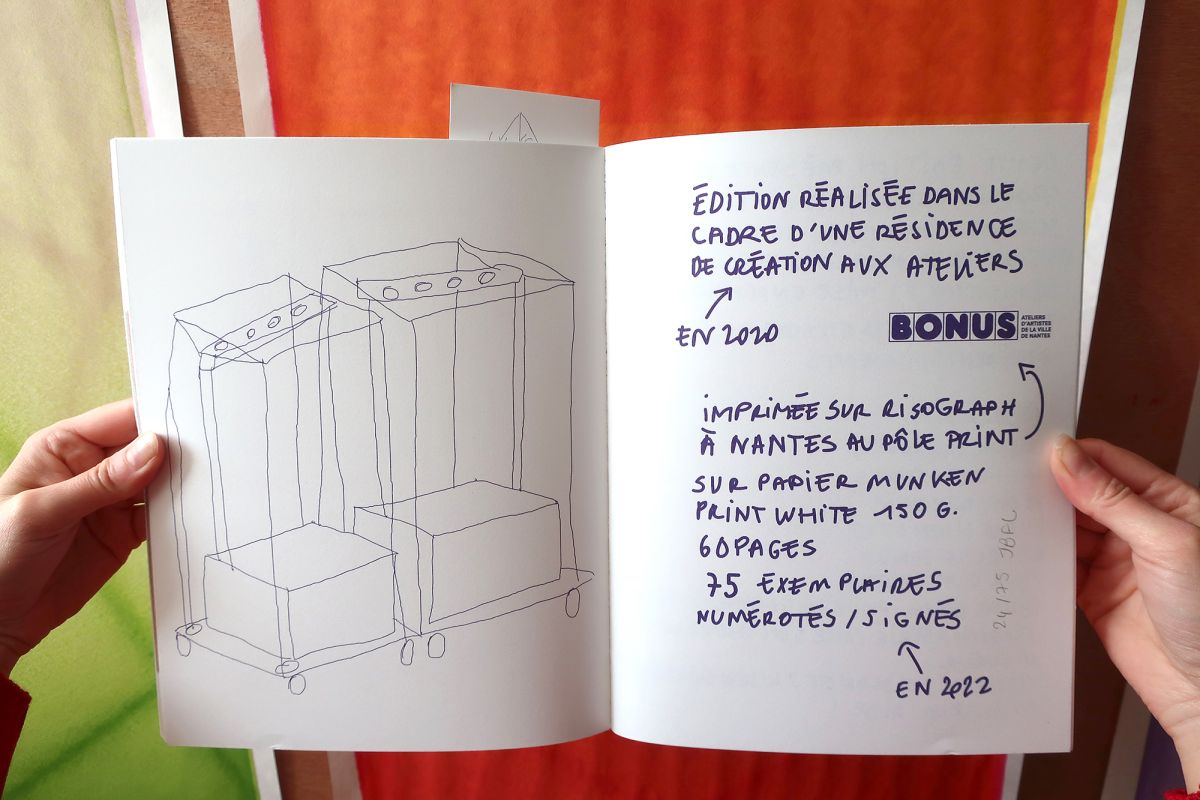 ÉDITION RÉALISÉE DANS LE
CADRE D'UNE RÉSIDENCE
DE CRÉATION AUX ATELIERS
EN 2020
BONUS
ATELIERS
D'ARTISTES
DE LA VILLE
DE NANTES
IMPRIMÉE SUR RISOGRAPH
À NANTES AU PÔLE PRINT
SUR PAPIER MUNKEN
PRINT WHITE 150 G.
60 PAGES
75 EXEMPLAIRES
NUMÉROTÉS / SIGNÉS
EN 2022
24/75